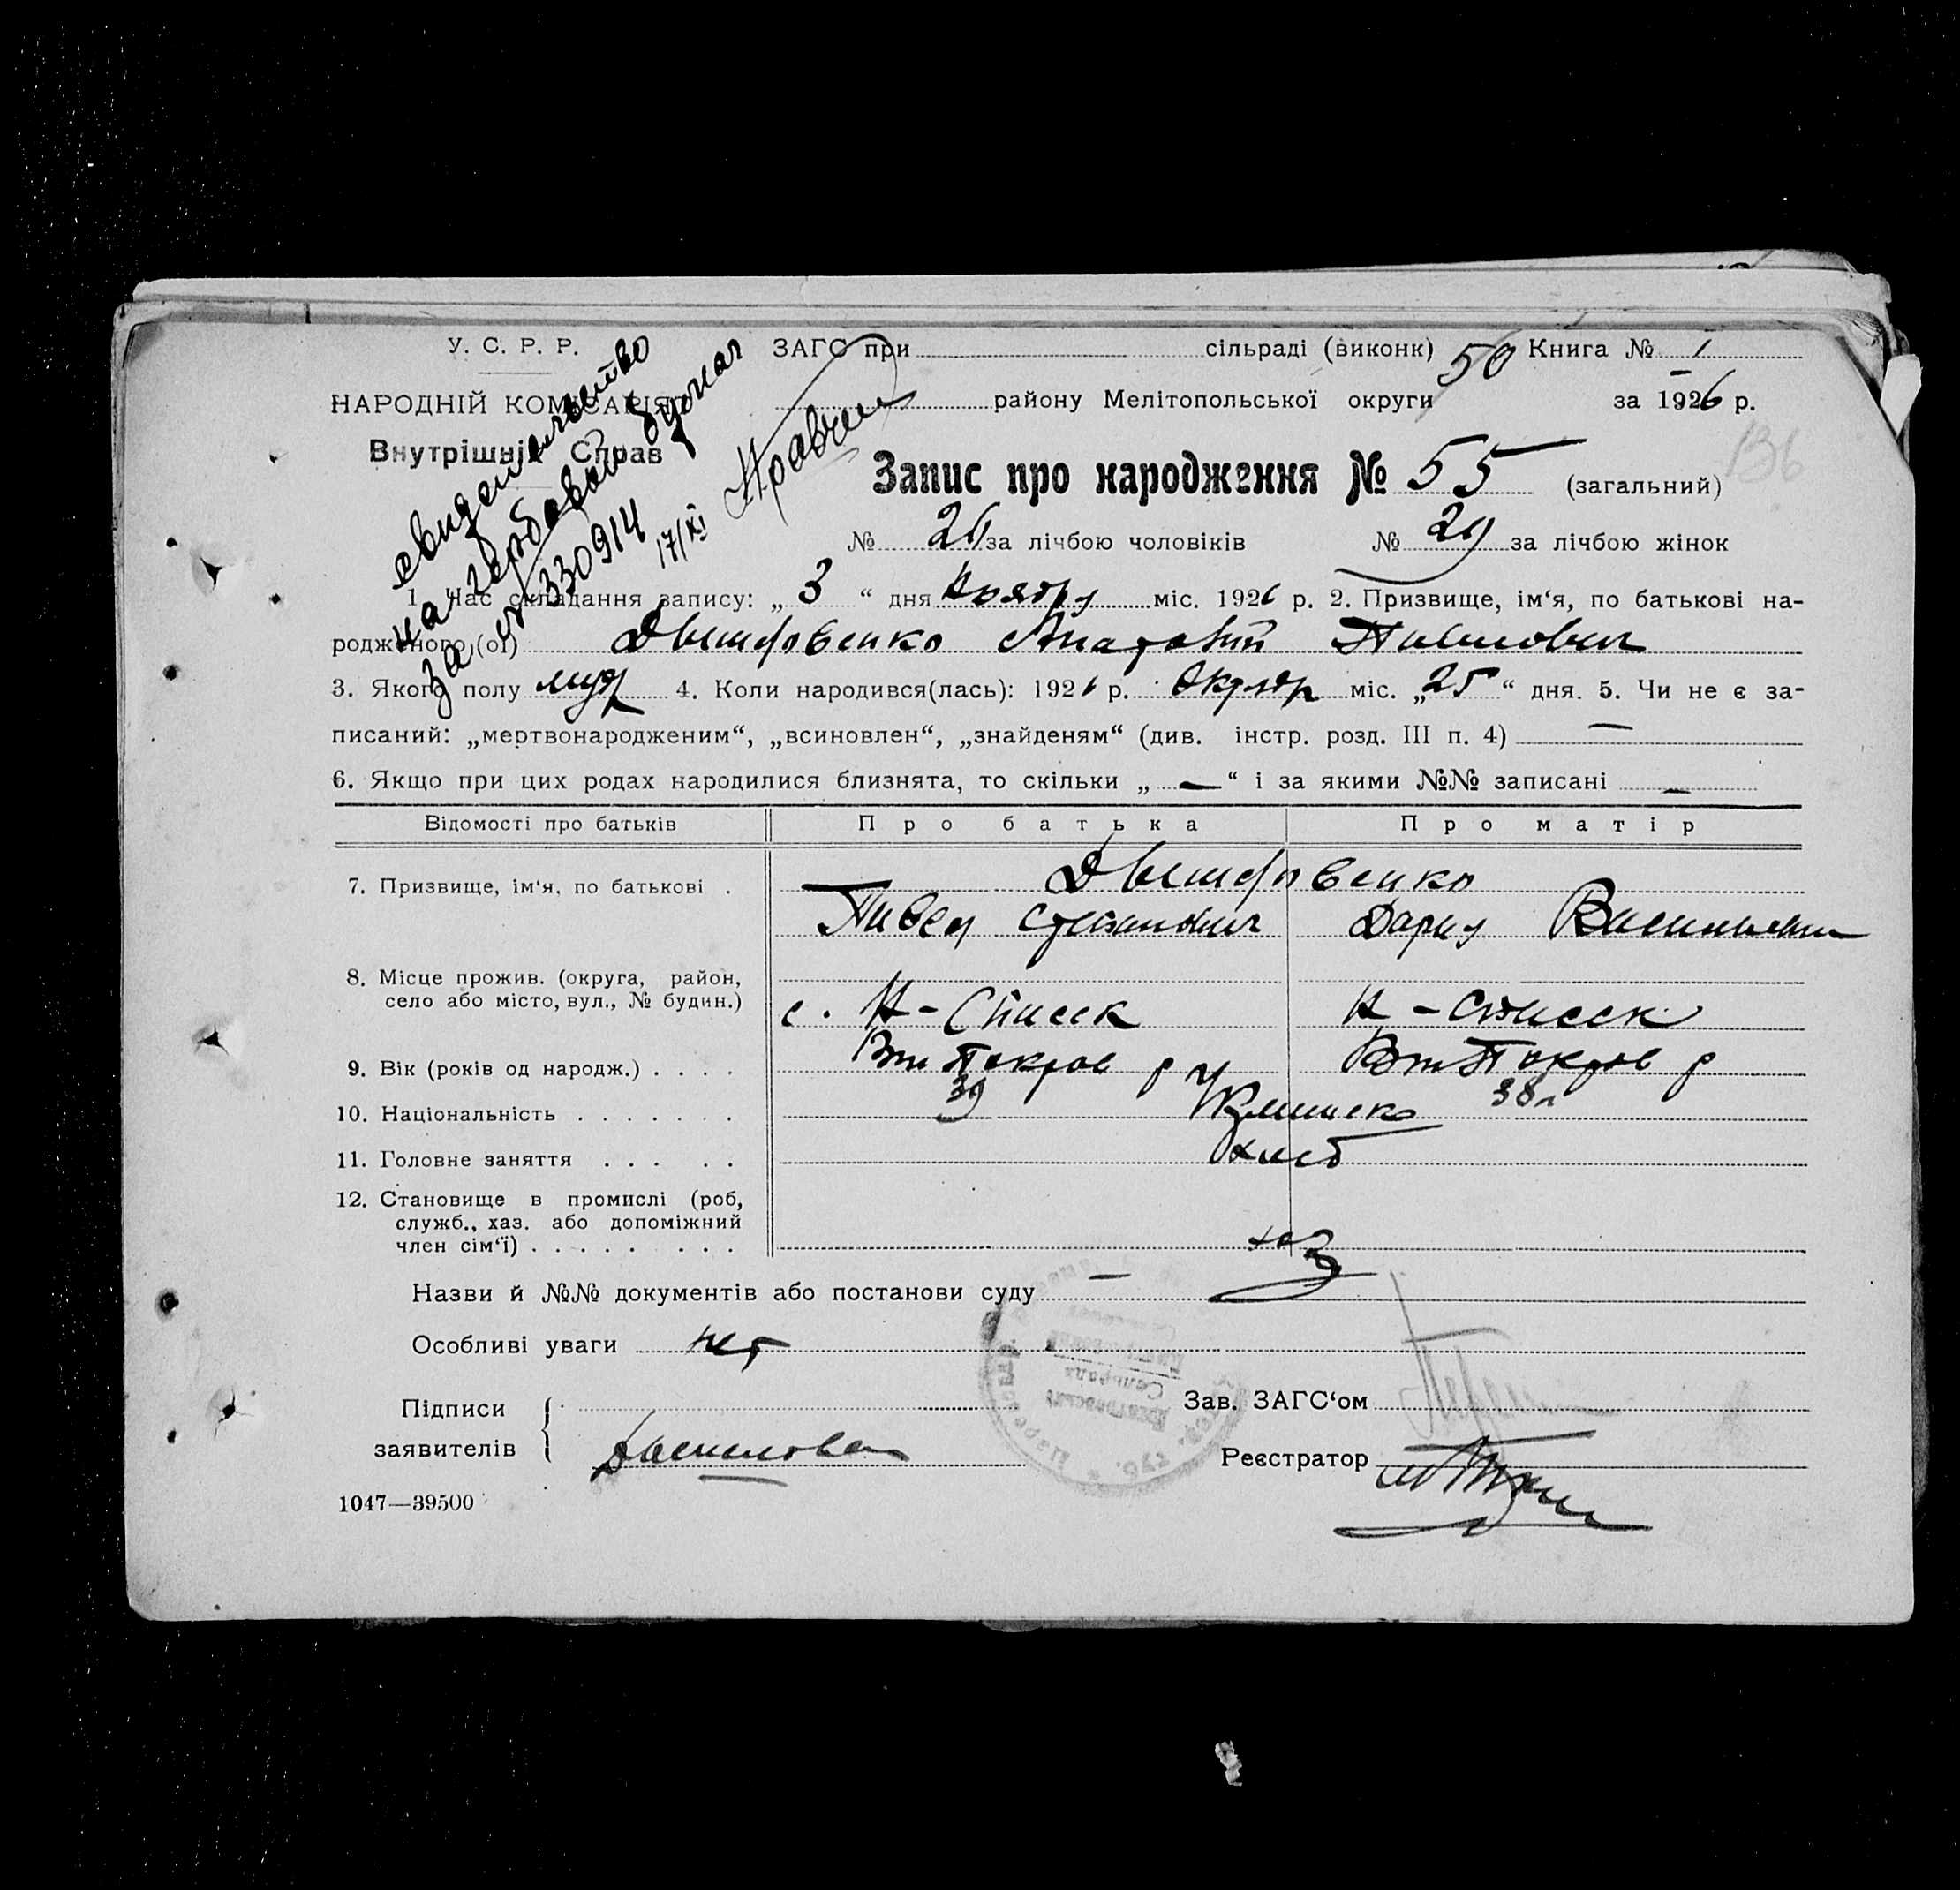 У. С. Р. Р.
НАРОДНІЙ КОМІСАРІЯТ
Внутрішніх Справ
свидетельство
на гербовой бумаг
за № 330914
17/XI
ЗАГС при сільраді (виконк) 50 Книга № 1
району Мелітопольської округи за 1926 р.
136
Запис про народження № 55 (загальний)
№ 26 за лічбою чоловіків № 29 за лічбою жінок
1. Час складання запису: „ 3 “ дня Ноября міс. 1926 р. 2. Призвище, ім‘я, по батькові на-
родженого (ої) Анатолий Павлович
3. Якого полу муж 4. Коли народився(лась): 1926 р. Октябр міс. „25“ дня. 5. Чи не є за-
писаний: „мертвонародженим“, „всиновлен“, „знайденям“ (див. інстр. розд. III п. 4) —
6. Якщо при цих родах народилися близнята, то скільки „ — “ і за якими №№ записані —
Відомості про батьків Про батька Про матір
7. Призвище, ім‘я, по батькові .
Павел Степанович Дария Васильевна
8. Місце прожив. (округа, район,
село або місто, вул., № будин.)
с. Н-Спасск Н-Спасск
9. Вік (років од народж.) . . . .
Покров р Покров р
39 38 л
10. Національність . . . . . . .
11. Головне заняття . . . . .
хлеб
12. Становище в промислі (роб,
служб., хаз. або допоміжний
член сім‘ї) . . . . . . . .
хаз
Назви й №№ документів або постанови суду —
Особливі уваги нет
Підписи
заявителів
Зав. ЗАГС‘ом
Реєстратор
1047—39500